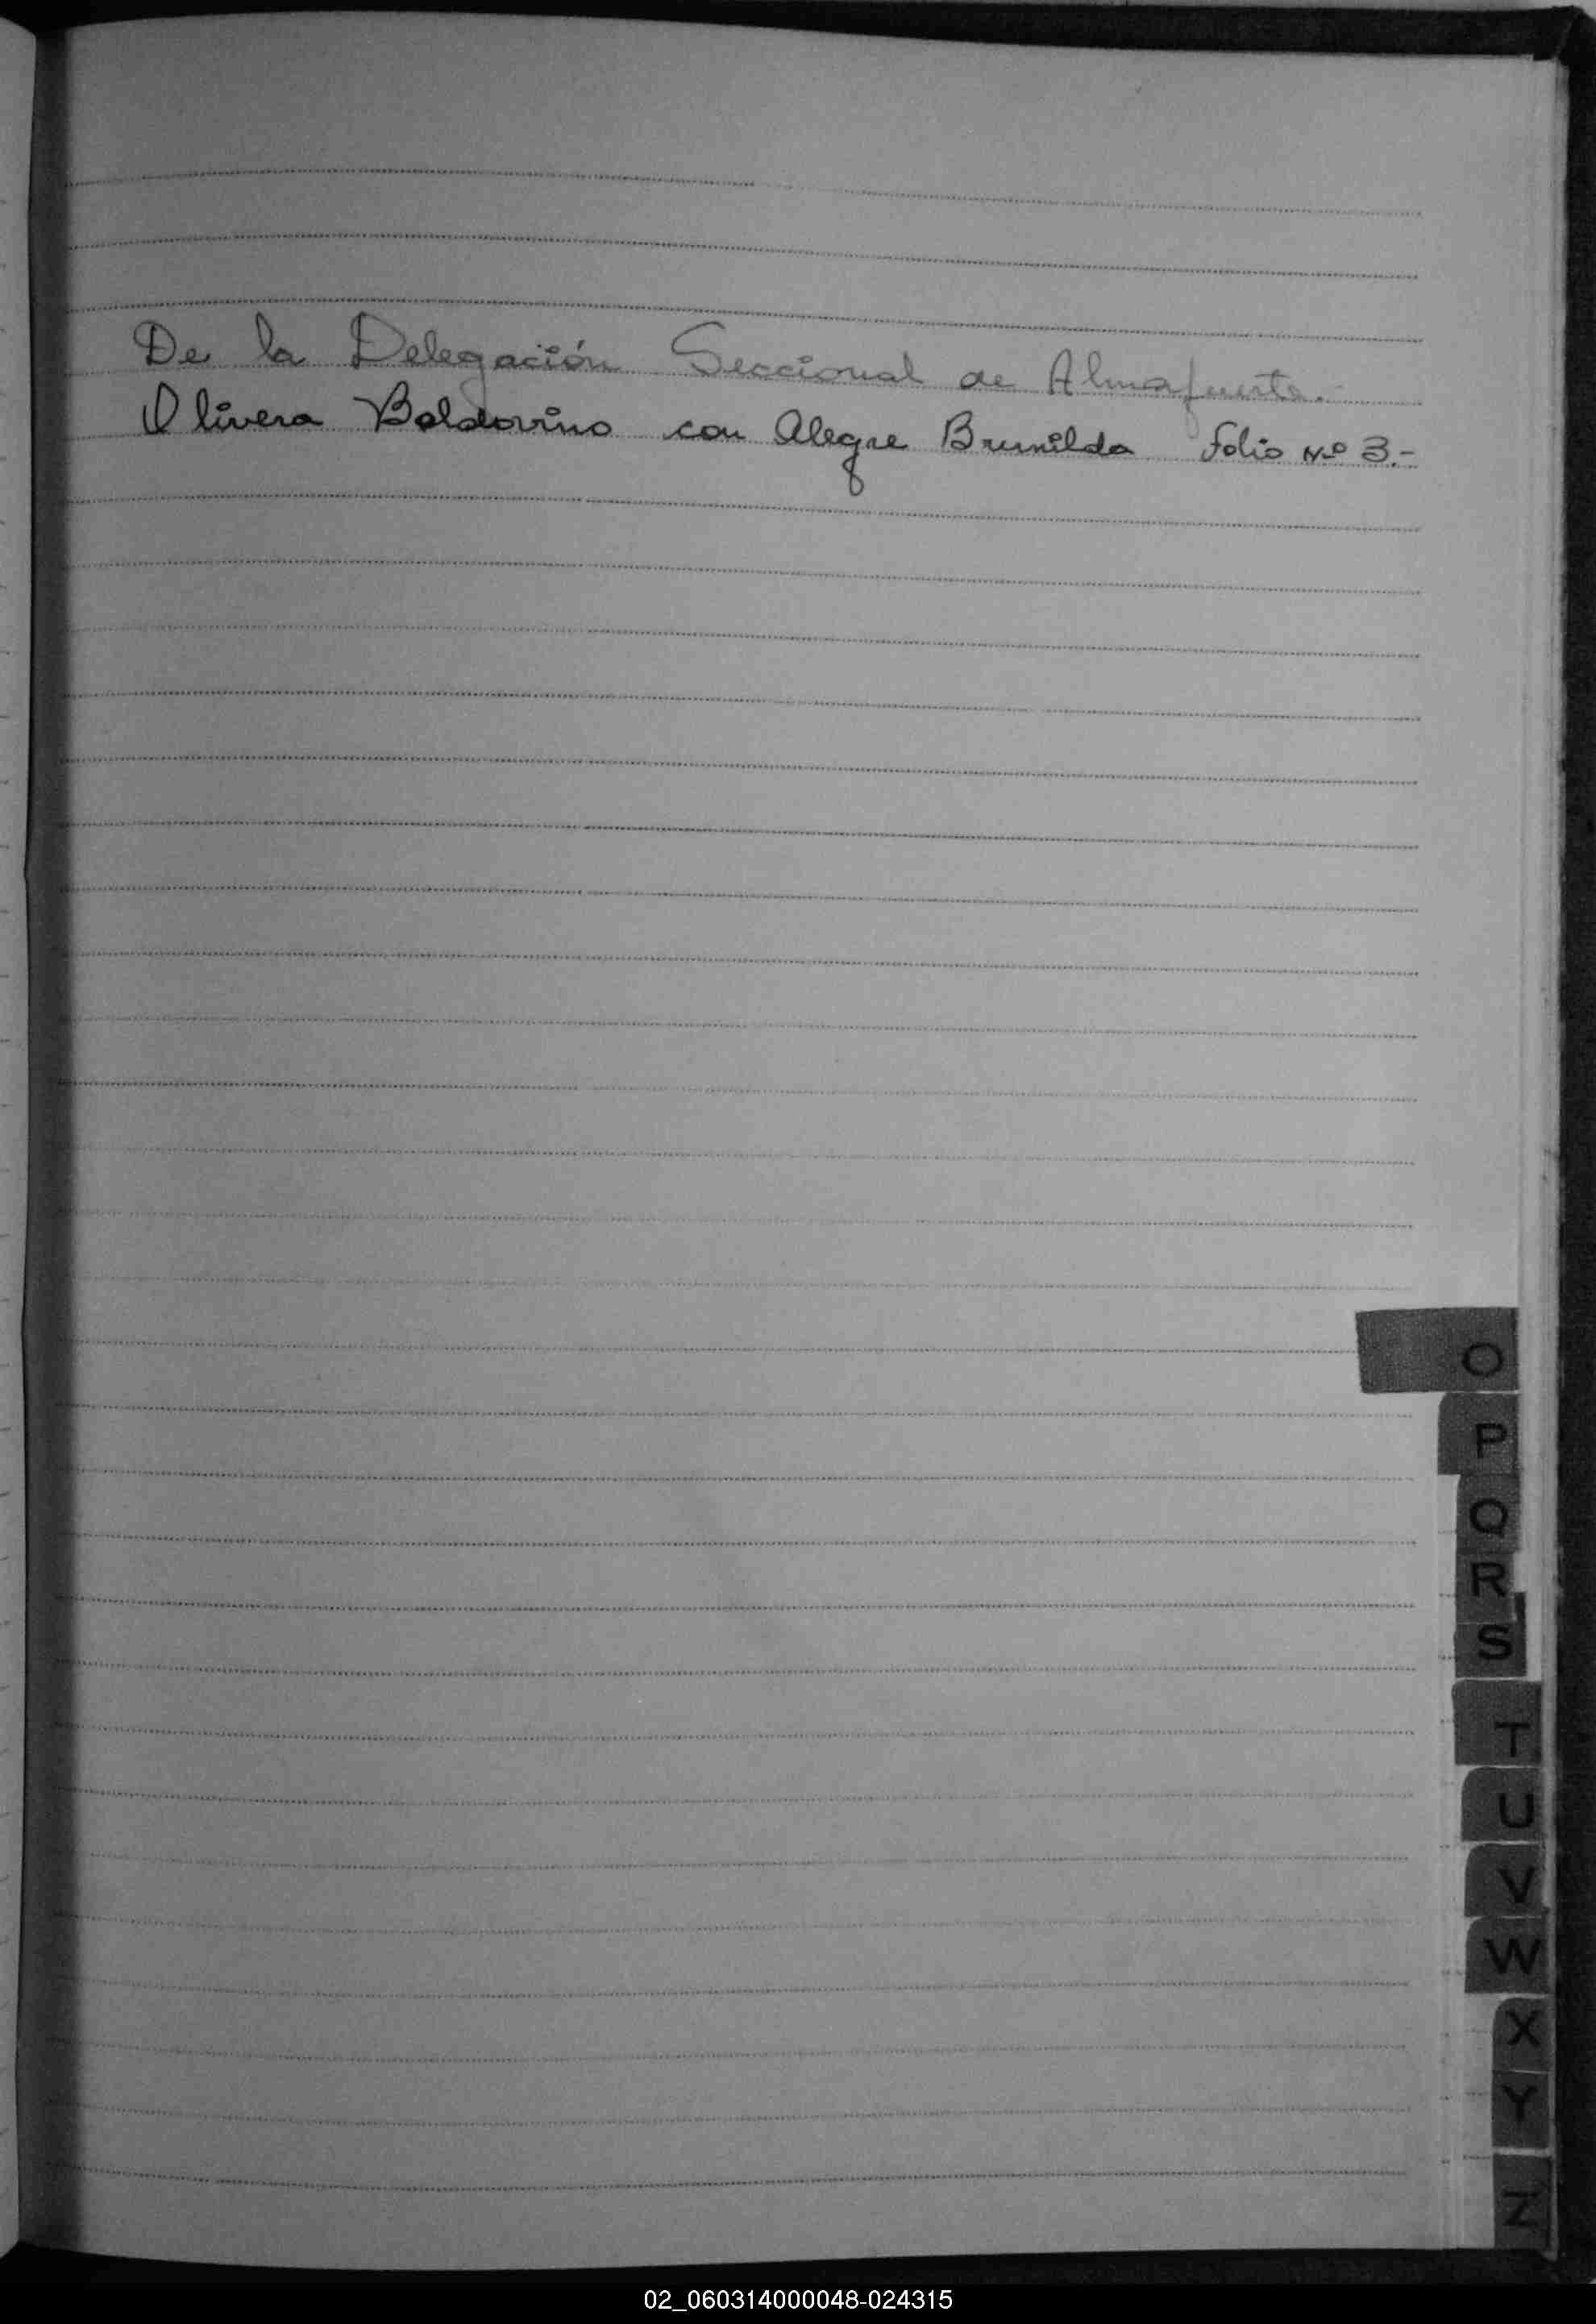 De la Delegación Seccional de Almafuerte.
Olivera Baldovino con Alegre Brunilda folio Nº 3.-
O
P
Q
R
S
T
U
V
W
X
Y
Z
02_060314000048-024315